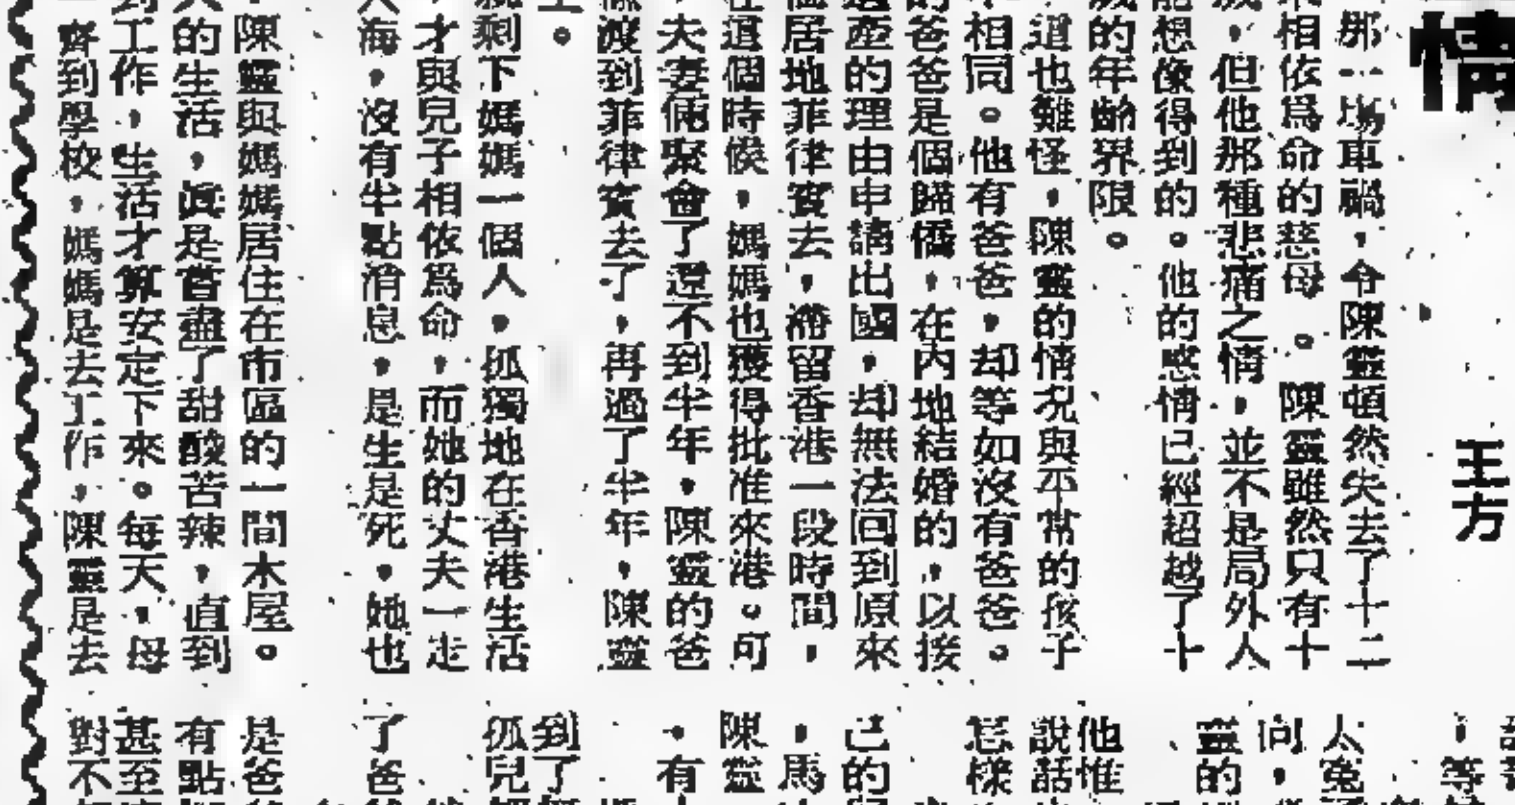 情
王方
那一場車禍,令陳靈頓然失去了十二
相依爲命的慈母。陳靈雖然只有十
歲,但他那種悲痛之情,並不是局外人
能想像得到的。他的感情已經超越了十
歲的年齡界限。
這也難怪,陳靈的情況與平常的孩子
相同。他有爸爸,却等如沒有爸爸。
的爸爸是個歸僑,在內地結婚的,以接
遺產的理由申請出國,却無法回到原來
居地菲律賓去,滯留香港一段時間,
在這個時候,媽媽也獲得批准來港。可
,夫妻倆聚會了還不到半年,陳靈的爸
渡到菲律賓去了,再過了半年,陳靈
。
剩下媽媽一個人,孤獨地在香港生活
,才與兒子相依爲命,而她的丈夫一走
海,沒有半點消息,是生是死,她也
陳靈與媽媽居住在市區的一間木屋。
的生活,眞是嘗盡了甜酸苦辣,直到
到工作,生活才算安定下來。每天,母
齊到學校,媽媽是去工作,陳靈是去
,等
太冤
向,
靈的
他惟
說話
怎樣
己的
,馬
陳靈
,有
到了
孤兒
了爸
是爸
有點
甚至
對不